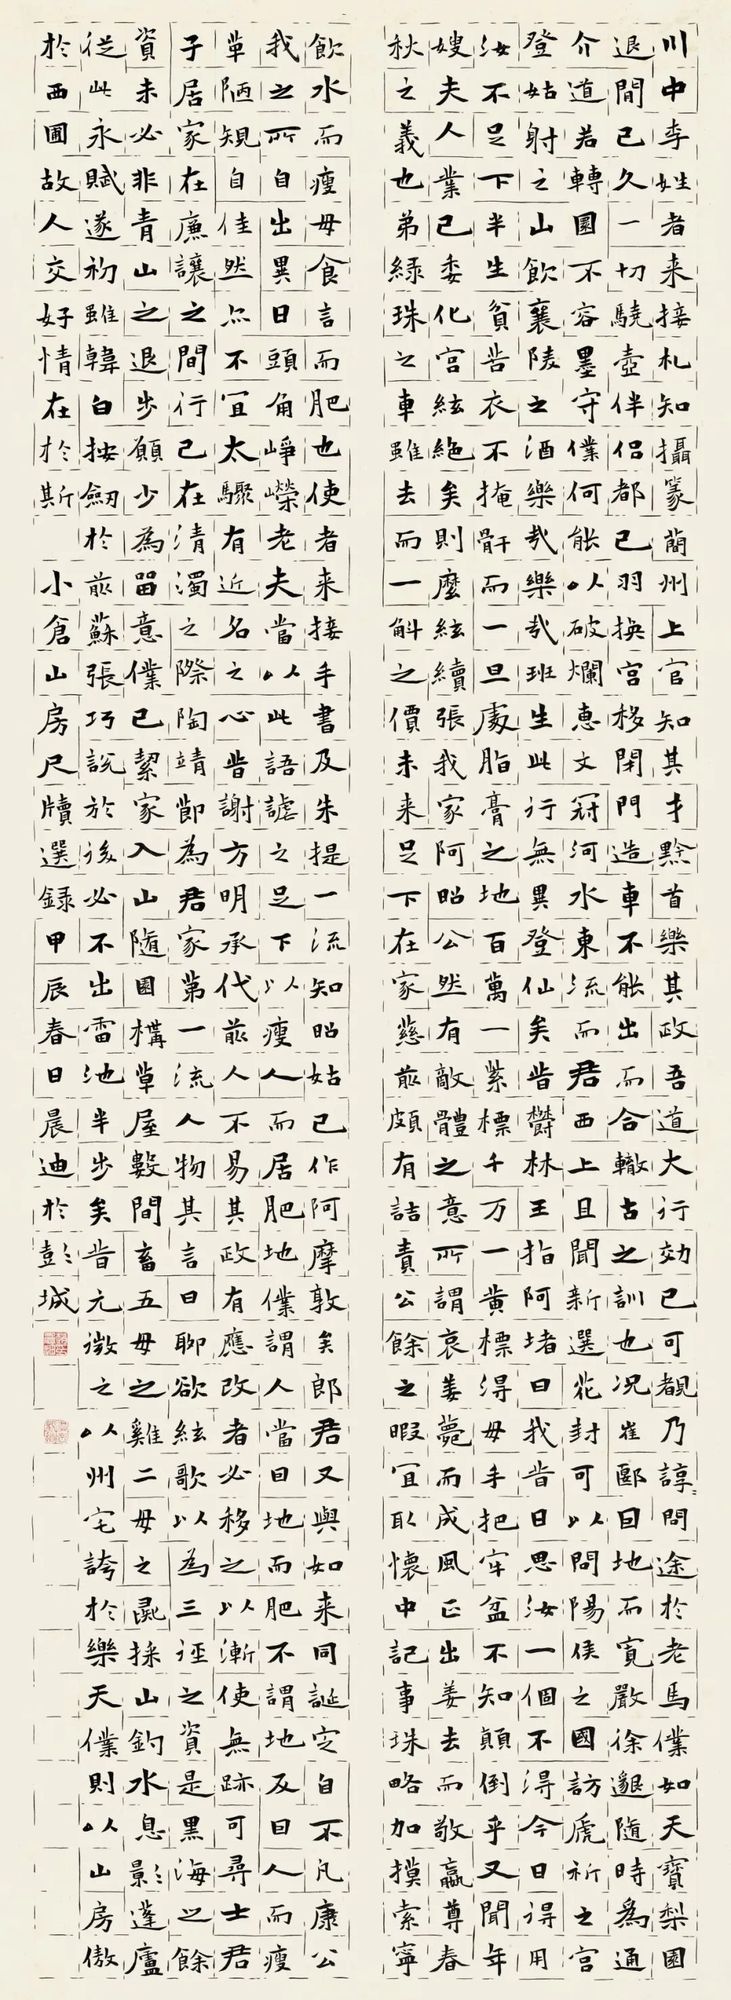 川中李姓者来接札知攝篆蘭州上官知其才黔首樂其政吾道大行効已可覩乃諄〻問途於老馬僕如天寶梨園
退閒已久一切驍壺伴侶都已羽換宮移閉門造車不能出而合轍古之訓也况崔郾因地而寬嚴徐邈隨時為通
介道若轉圜不容墨守僕何能以破爛惠文冠河水東流而君西上且聞新選花封可以問陽侯之國訪虒祈之宮
登姑射之山飲襄陵之酒樂哉樂哉班生此行無異登仙矣昔欝林王指阿堵曰我昔日思汝一個不得今日得用
汝不足下半生貧苦衣不掩骭而一旦處脂膏之地百萬一紫標千万一黄標得毋手把牢盆不知顛倒乎又聞年
嫂夫人業已委化宮絃絶矣則麼絃續張我家阿昭公然有敵體之意所謂哀姜薨而成風正出姜去而敬嬴尊春
秋之義也弟緑珠之車雖去而一斛之價未来足下在家慈前頗有詰責公餘之暇宜取懷中記事珠略加摸索寧
飲水而瘦毋食言而肥也使者来接手書及朱提一流知昭姑已作阿摩敦矣郎君又與如来同誕定自不凡康公
我之所自出異日頭角崢嶸老夫當以此語謔之足下以瘦人而居肥地僕謂人當因地而肥不謂地反因人而瘦
單陋規自佳然点不宜太驟有近名之心昔謝方明承代前人不易其政有應改者必移之以漸使無跡可尋士君
子居家在廉讓之間行己在清濁之際陶靖節為君家第一流人物其言曰聊欲絃歌以為三逕之資是黑海之餘
資未必非青山之退步願少為留意僕已絜家入山隨園構草屋數間畜五母之雞二母之彘採山釣水息影蓬廬
従此永賦遂初雖韓白按劒於前蘇張巧說於後必不出雷池半步矣昔元微之以州宅誇於樂天僕則以山房傲
於西圃故人交好情在於斯 小倉山房尺牘選録甲辰春日晨迪於彭城